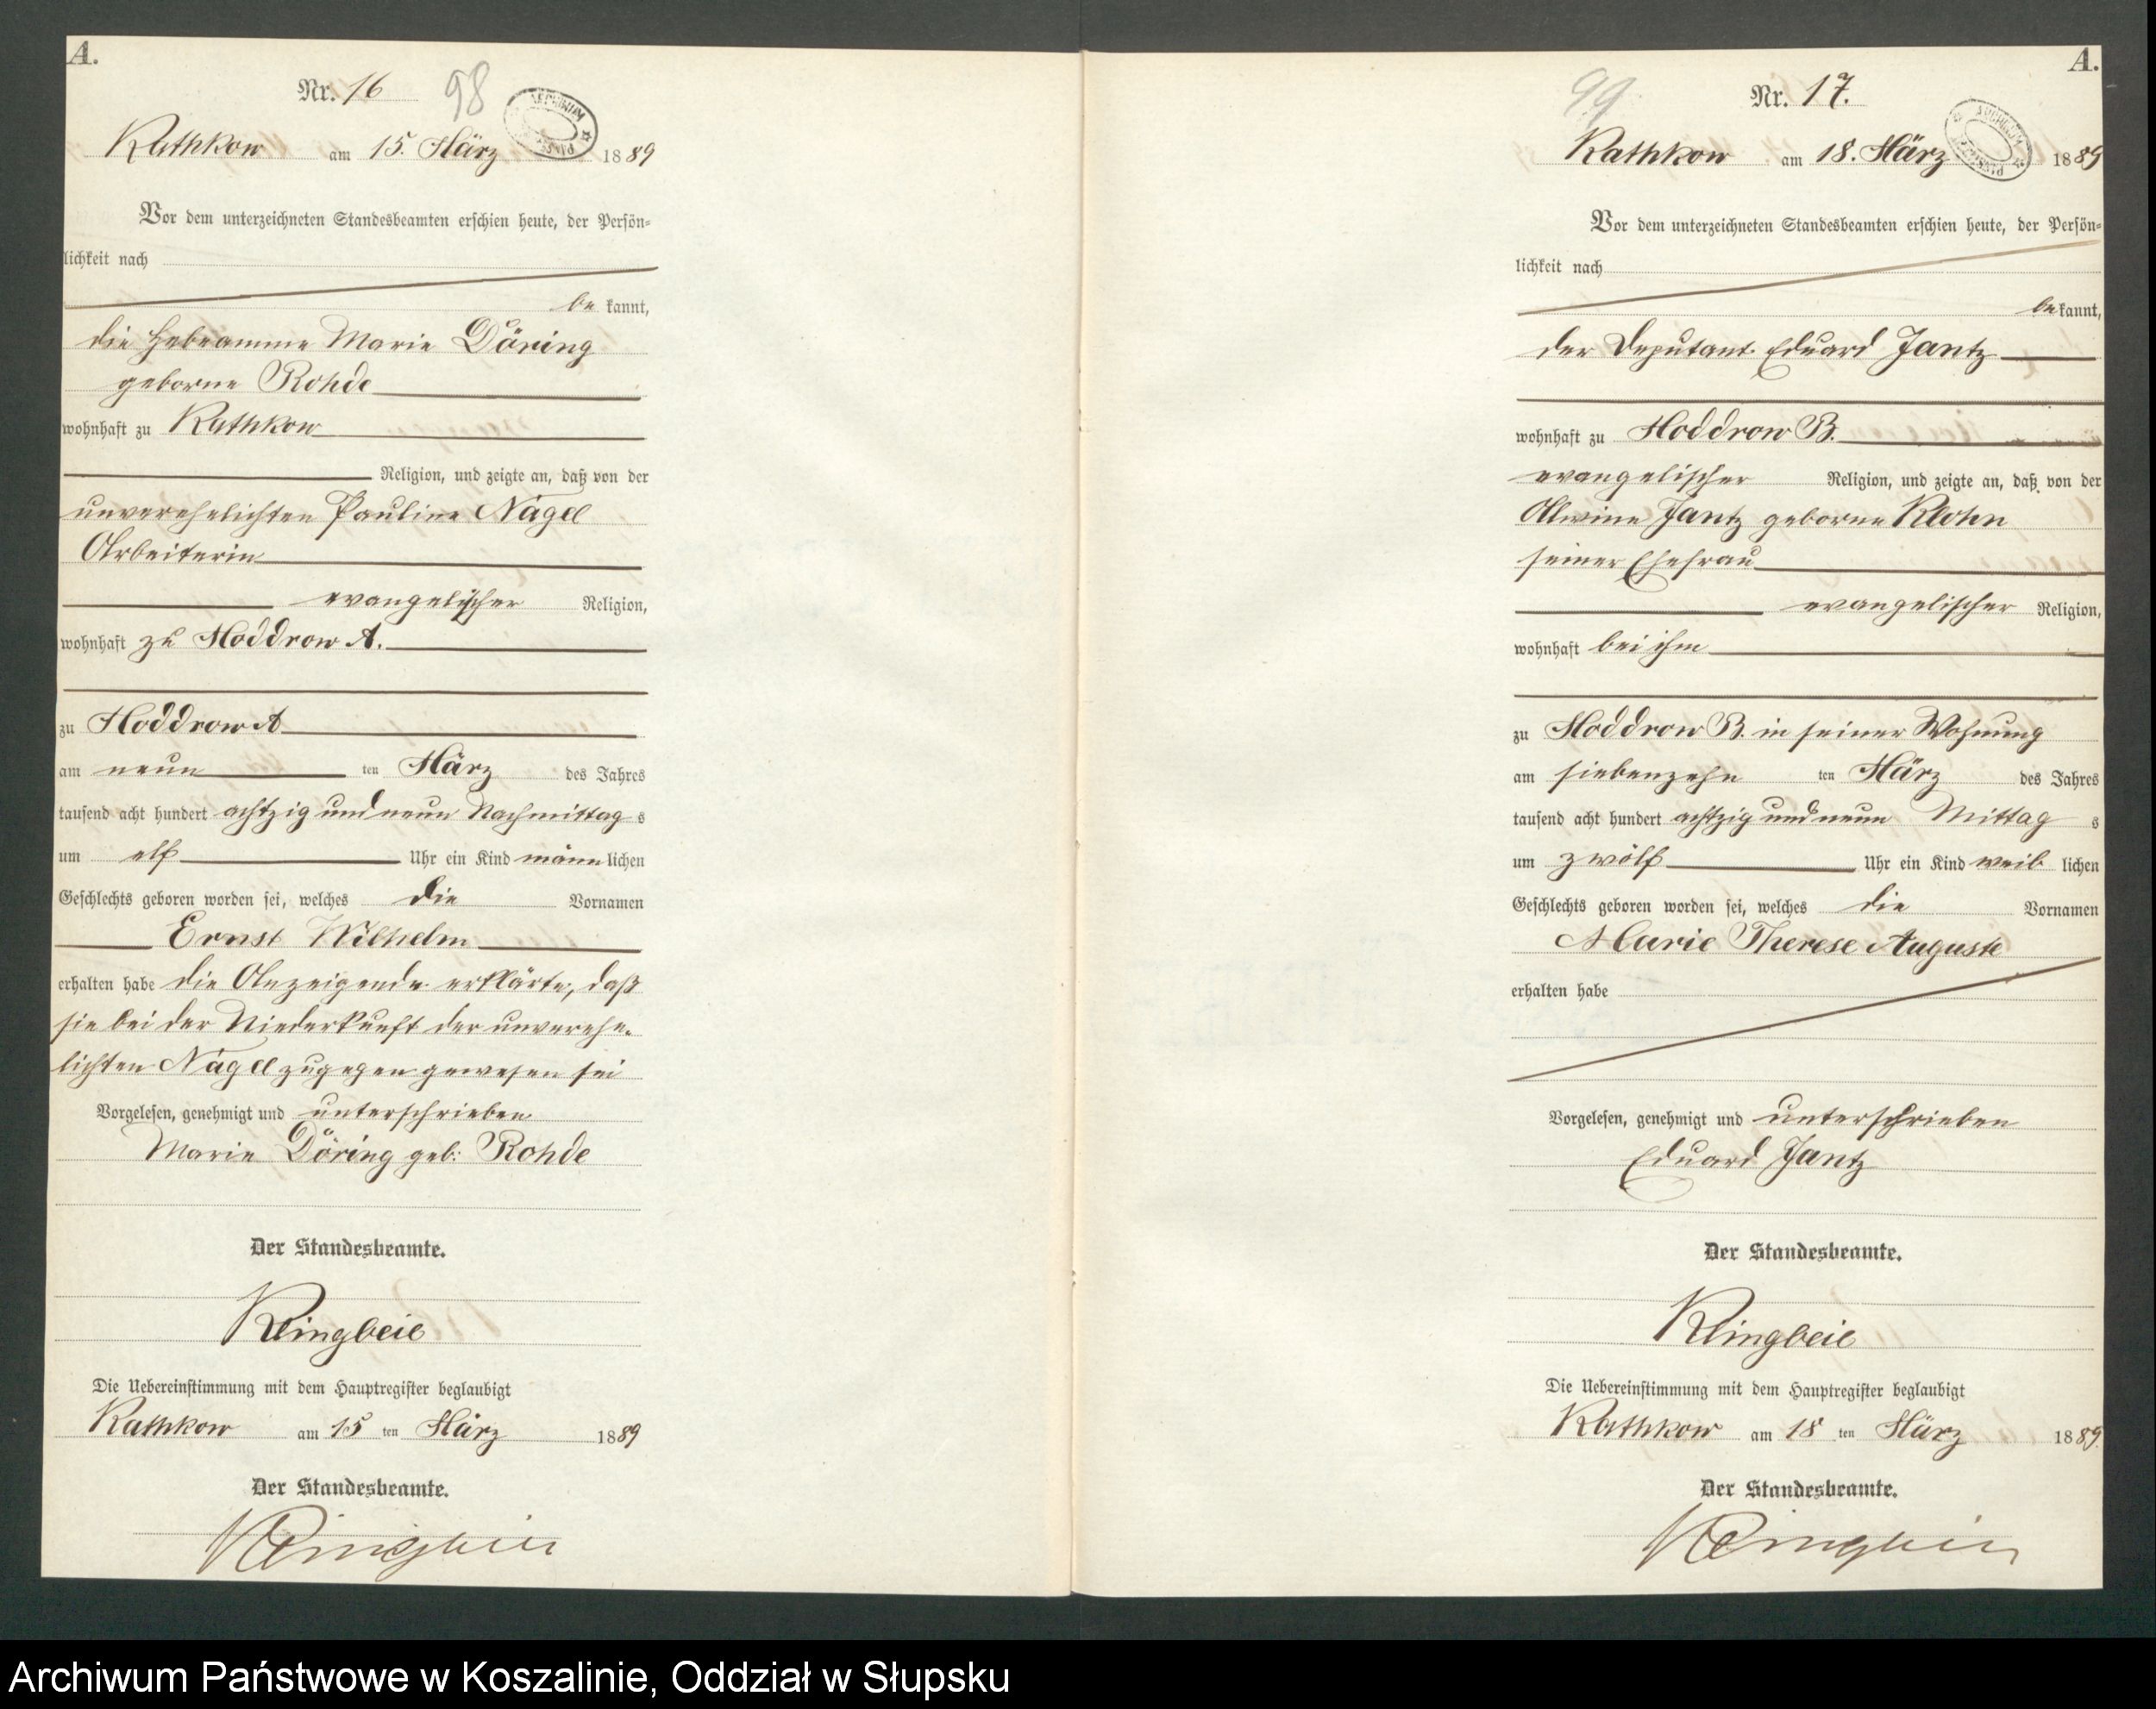 A.
Nr. 16
98
Rathkow am 15. März 1889
Vor dem unterzeichneten Standesbeamten erschien heute, der Persön-
lichkeit nach
be kannt,
die Hebeamme Marie Döring
geborne Rohde
wohnhaft zu Rathkow
Religion, und zeigte an, daß von der
unverehelichten Pauline Nagel
Arbeiterin
evangelischer Religion,
wohnhaft zu Moddrow A.
zu Moddrow A
am neun ten März des Jahres
tausend acht hundert achtzig und neun Nachmittag s
um elf Uhr ein Kind männ lichen
Geschlechts geboren worden sei, welches die Vornamen
Ernst Wilhelm
erhalten habe die Anzeigende erklärte, daß
sie bei der Niederkunft der unverehe-
lichten Nagel zugegen gewesen sei
Vorgelesen, genehmigt und unterschrieben
Marie Döring geb: Rohde
Der Standesbeamte.
Klingbeil
Die Uebereinstimmung mit dem Hauptregister beglaubigt
Rathkow am 15 ten März 1889
Der Standesbeamte.
Klingbeil
A.
99
Nr. 17.
Rathkow am 18. März 1889
Vor dem unterzeichneten Standesbeamten erschien heute, der Persön-
lichkeit nach
be kannt,
der Deputant Eduard Jantz
wohnhaft zu Moddrow B.
evangelischer Religion, und zeigte an, daß von der
Alwine Jantz geborne Klohn
seiner Ehefrau
evangelischer Religion,
wohnhaft bei ihm
zu Moddrow B. in seiner Wohnung
am siebenzehn ten März des Jahres
tausend acht hundert achtzig und neun Mittag s
um zwölf Uhr ein Kind weib lichen
Geschlechts geboren worden sei, welches die Vornamen
Marie Therese Auguste
erhalten habe
Vorgelesen, genehmigt und unterschrieben
Eduard Jantz
Der Standesbeamte.
Klingbeil
Die Uebereinstimmung mit dem Hauptregister beglaubigt
Rathkow am 18 ten März 1889.
Der Standesbeamte.
Klingbeil
Archiwum Państwowe w Koszalinie, Oddział w Słupsku